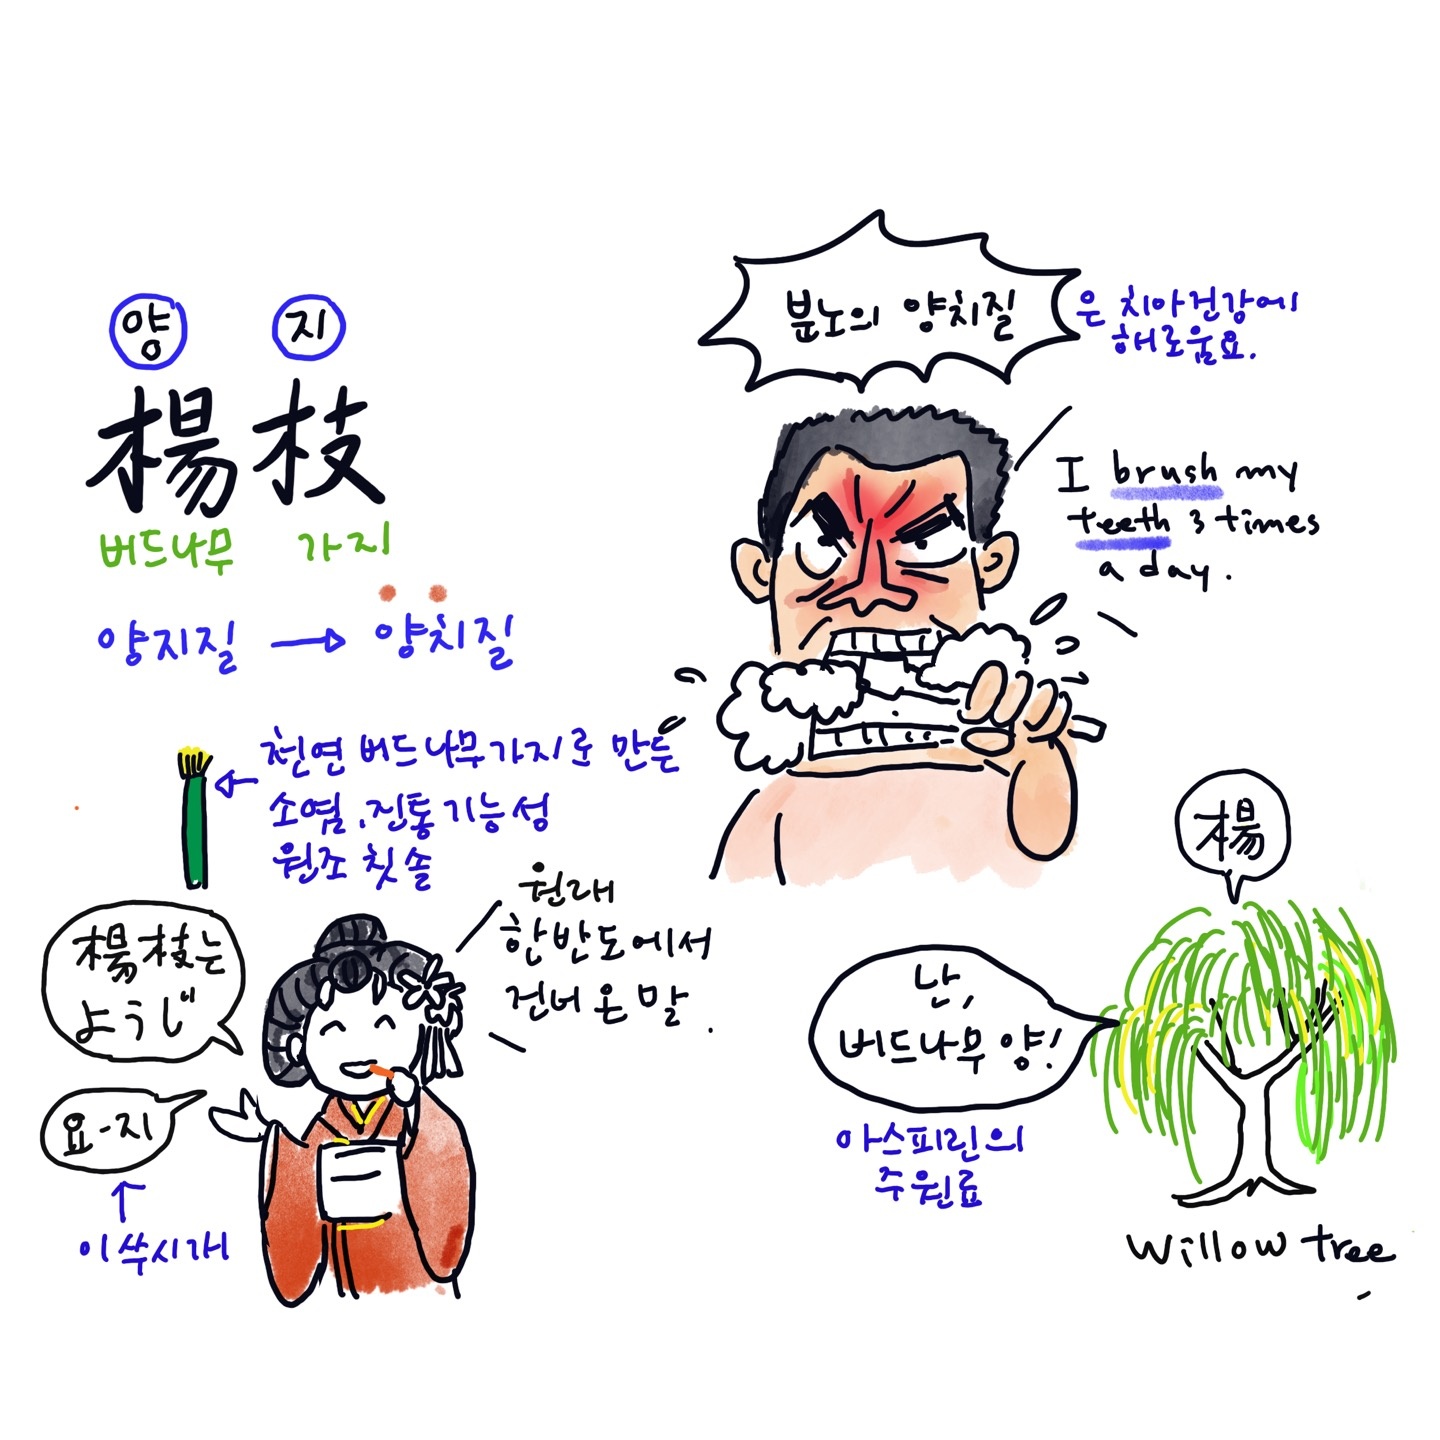 양 지
楊枝
버드나무 가지
양지질 → 양치질
천연 버드나무가지로 만든
소염.진통기능성
원조 칫솔
楊枝는
ようじ
요-지
이쑤시개
원래
한반도에서
건너온 말.
분노의 양치질
은 치아건강에
해로움요.
I brush my
teeth 3 times
a day.
楊
난,
버드나무 양!
아스피린의
주원료
willow tree